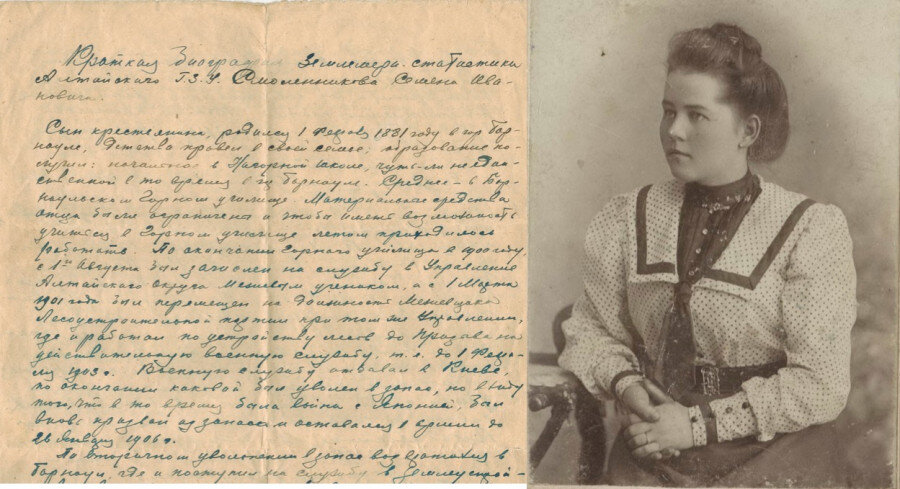 Краткая Биография Землемера-статистика
Алтайского Г.З.У Смоленникова Семена Ива-
новича.
Сын крестьянина, родился 1 Февраля 1881 году в гор Бар-
науле, детство провел в своей семье; образование по-
лучил: начальное в Нагорной школе, чуть-ли не единс-
ственной в то время в гор Барнауле. Среднее - в Бар-
наульском Горном училище. Материальные средства
отца были ограничены и чтобы иметь возможность
учиться в Горном училище летом приходилось
работать. По окончании Горного училища в 1900 году,
с 1го Августа был зачислен на службу в Управление
Алтайского Округа Межевым учеником, а с 1 Марта
1901 года был перемещен на должность Межевщика
Лесоустроительной партии при том же Управлении,
где и работал по устройству лесов до призыва на
действительную военную службу, т.е. до 1 Февра-
ля 1903 г. Военную службу отбывал в Киеве,
по окончании каковой был уволен в запас, но в виду
того, что в то время была война с Японией, был
вновь призван из запаса и оставался в армии до
26 Января 1906 г.
По вторичном увольнении в запас возвратился в
Барнаул, где и поступил на службу в Землеустрой-